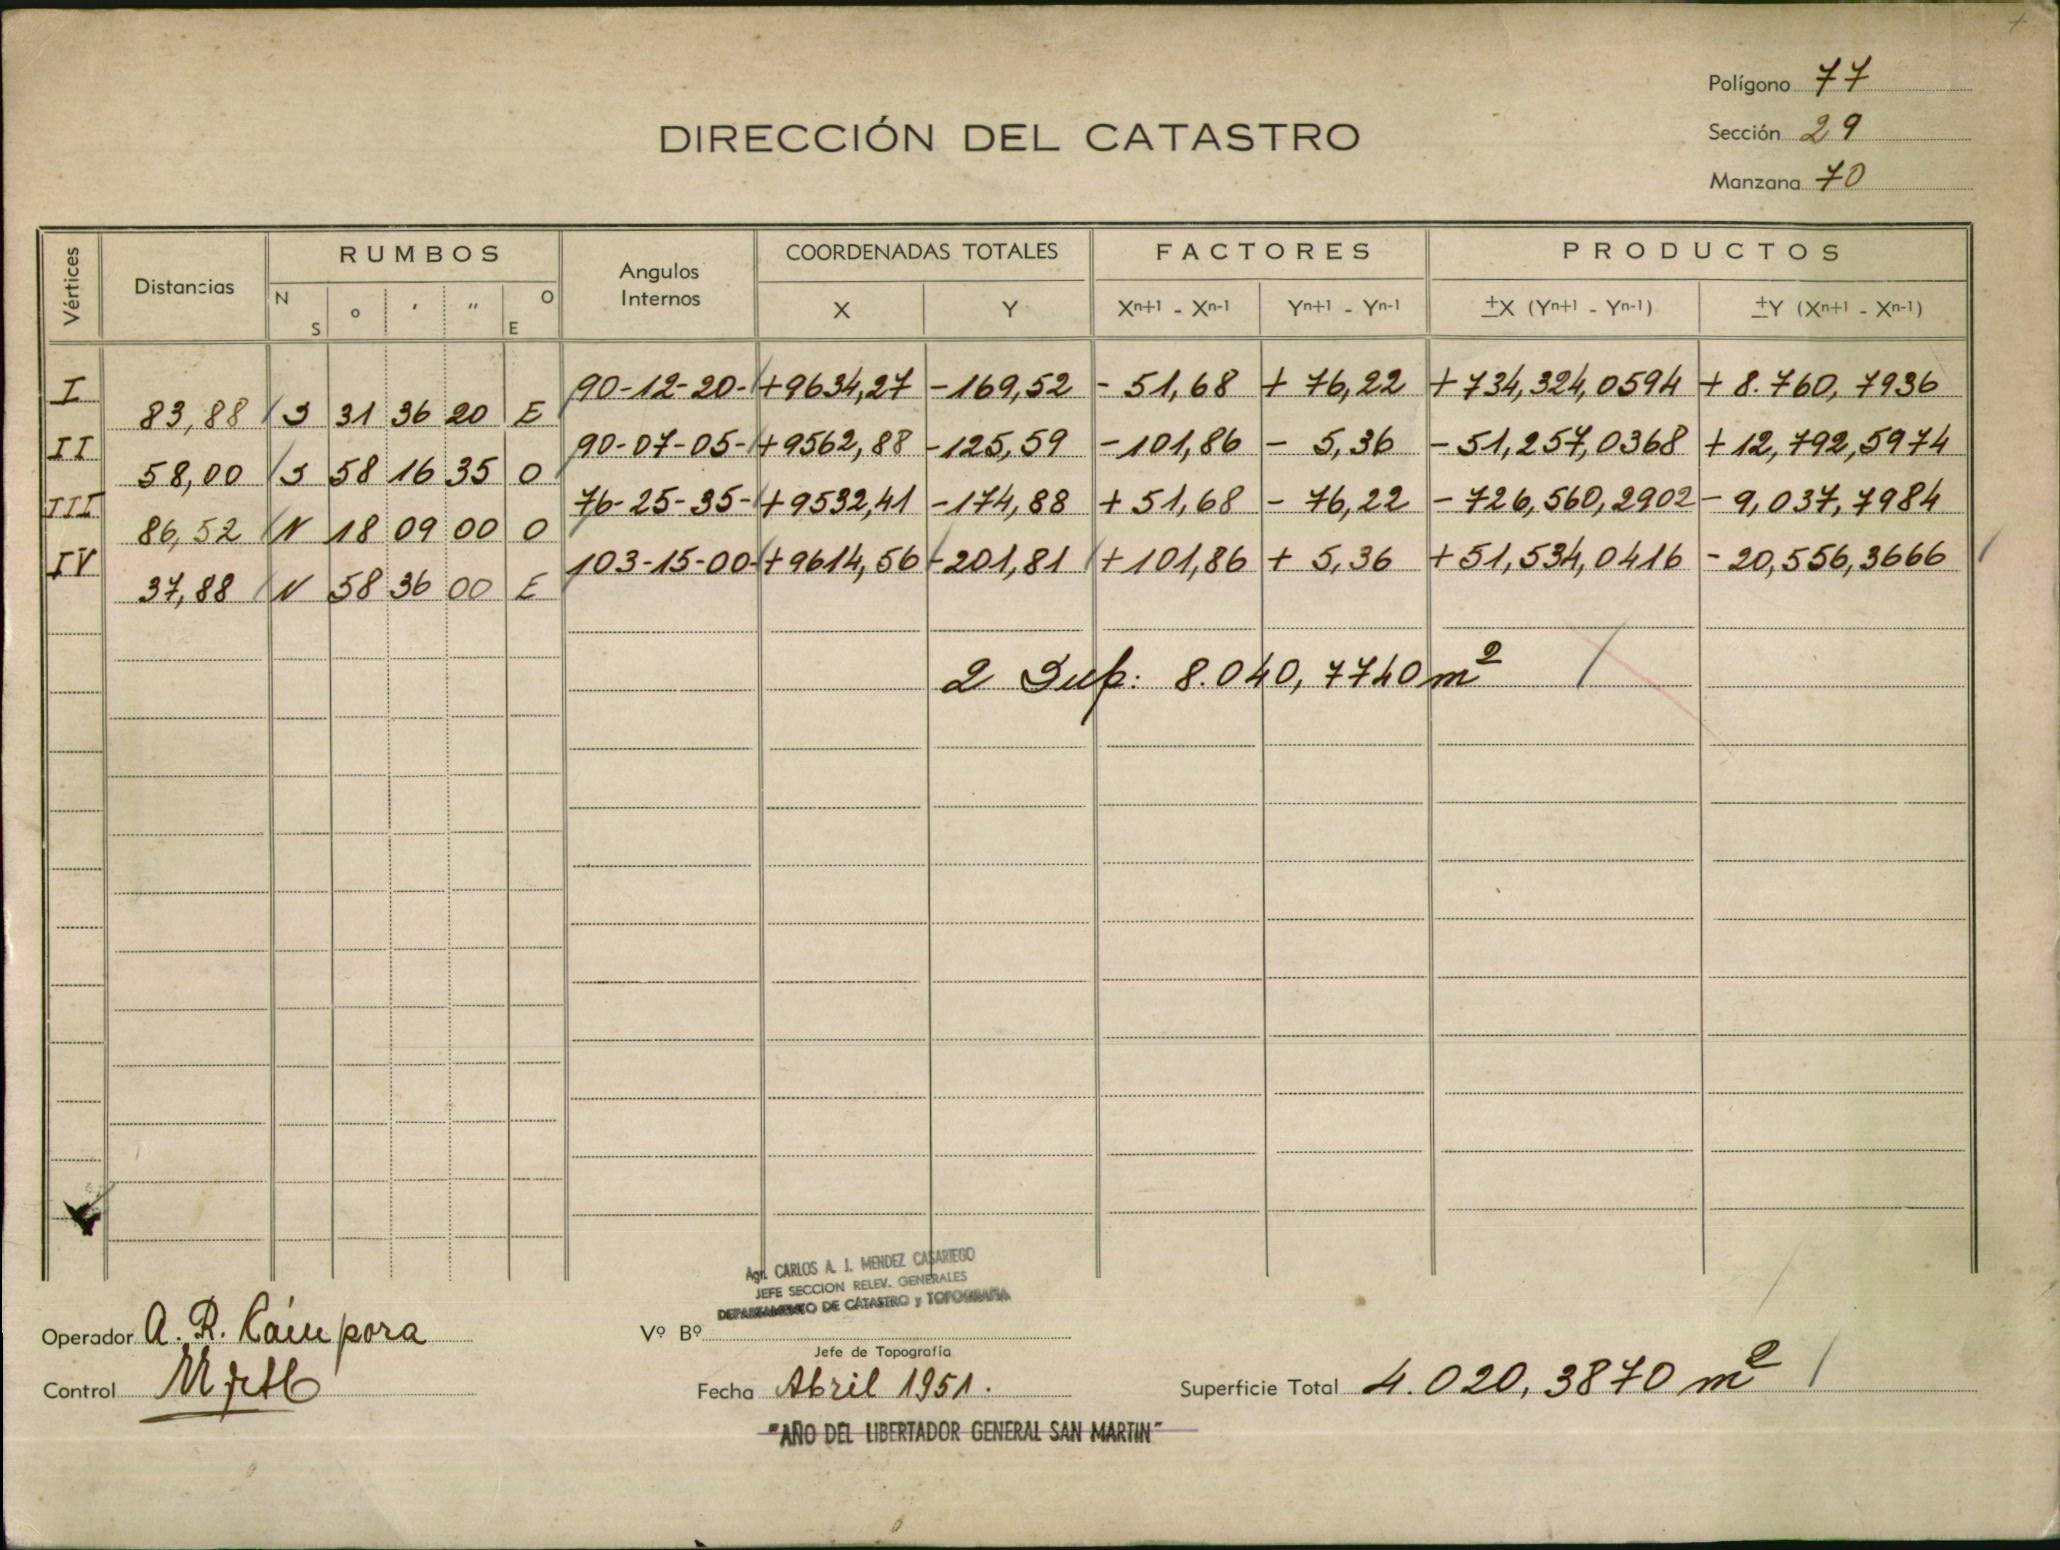 Polígono 77
DIRECCIÓN DEL CATASTRO
Sección 29
Manzana 70
Vértices Distancias RUMBOS Angulos Internos COORDENADAS TOTALES FACTORES PRODUCTOS
N S ° ' " O E X Y Xn+1 - Xn-1 Yn+1 - Yn-1 ±X (Yn+1 - Yn-1) ±Y (Xn+1 - Xn-1)
I 90-12-20- +9634,27 -169,52 - 51,68 + 76,22 + 734,324,0594 + 8.760,7936
83,88 S 31 36 20 E
II 90-07-05- +9562,88 -125,59 -101,86 - 5,36 - 51,257,0368 + 12,792,5974
58,00 S 58 16 35 O
III 76-25-35- +9532,41 -174,88 + 51,68 - 76,22 - 726,560,2902 - 9,037,7984
86,52 N 18 09 00 O
IV 103-15-00- +9614,56 -201,81 +101,86 + 5,36 +51,534,0416 - 20,556,3666
37,88 N 58 36 00 E
2 Sup: 8.040,7740 m²
Agr. CARLOS A. I. MENDEZ CASARIEGO
JEFE SECCION RELEV. GENERALES
DEPARTAMENTO DE CATASTRO y TOPOGRAFIA
Operador A. R. Cámpora
Vº Bº
Jefe de Topografía
Control
Fecha Abril 1951.
Superficie Total 4.020,3870 m²
"AÑO DEL LIBERTADOR GENERAL SAN MARTIN"